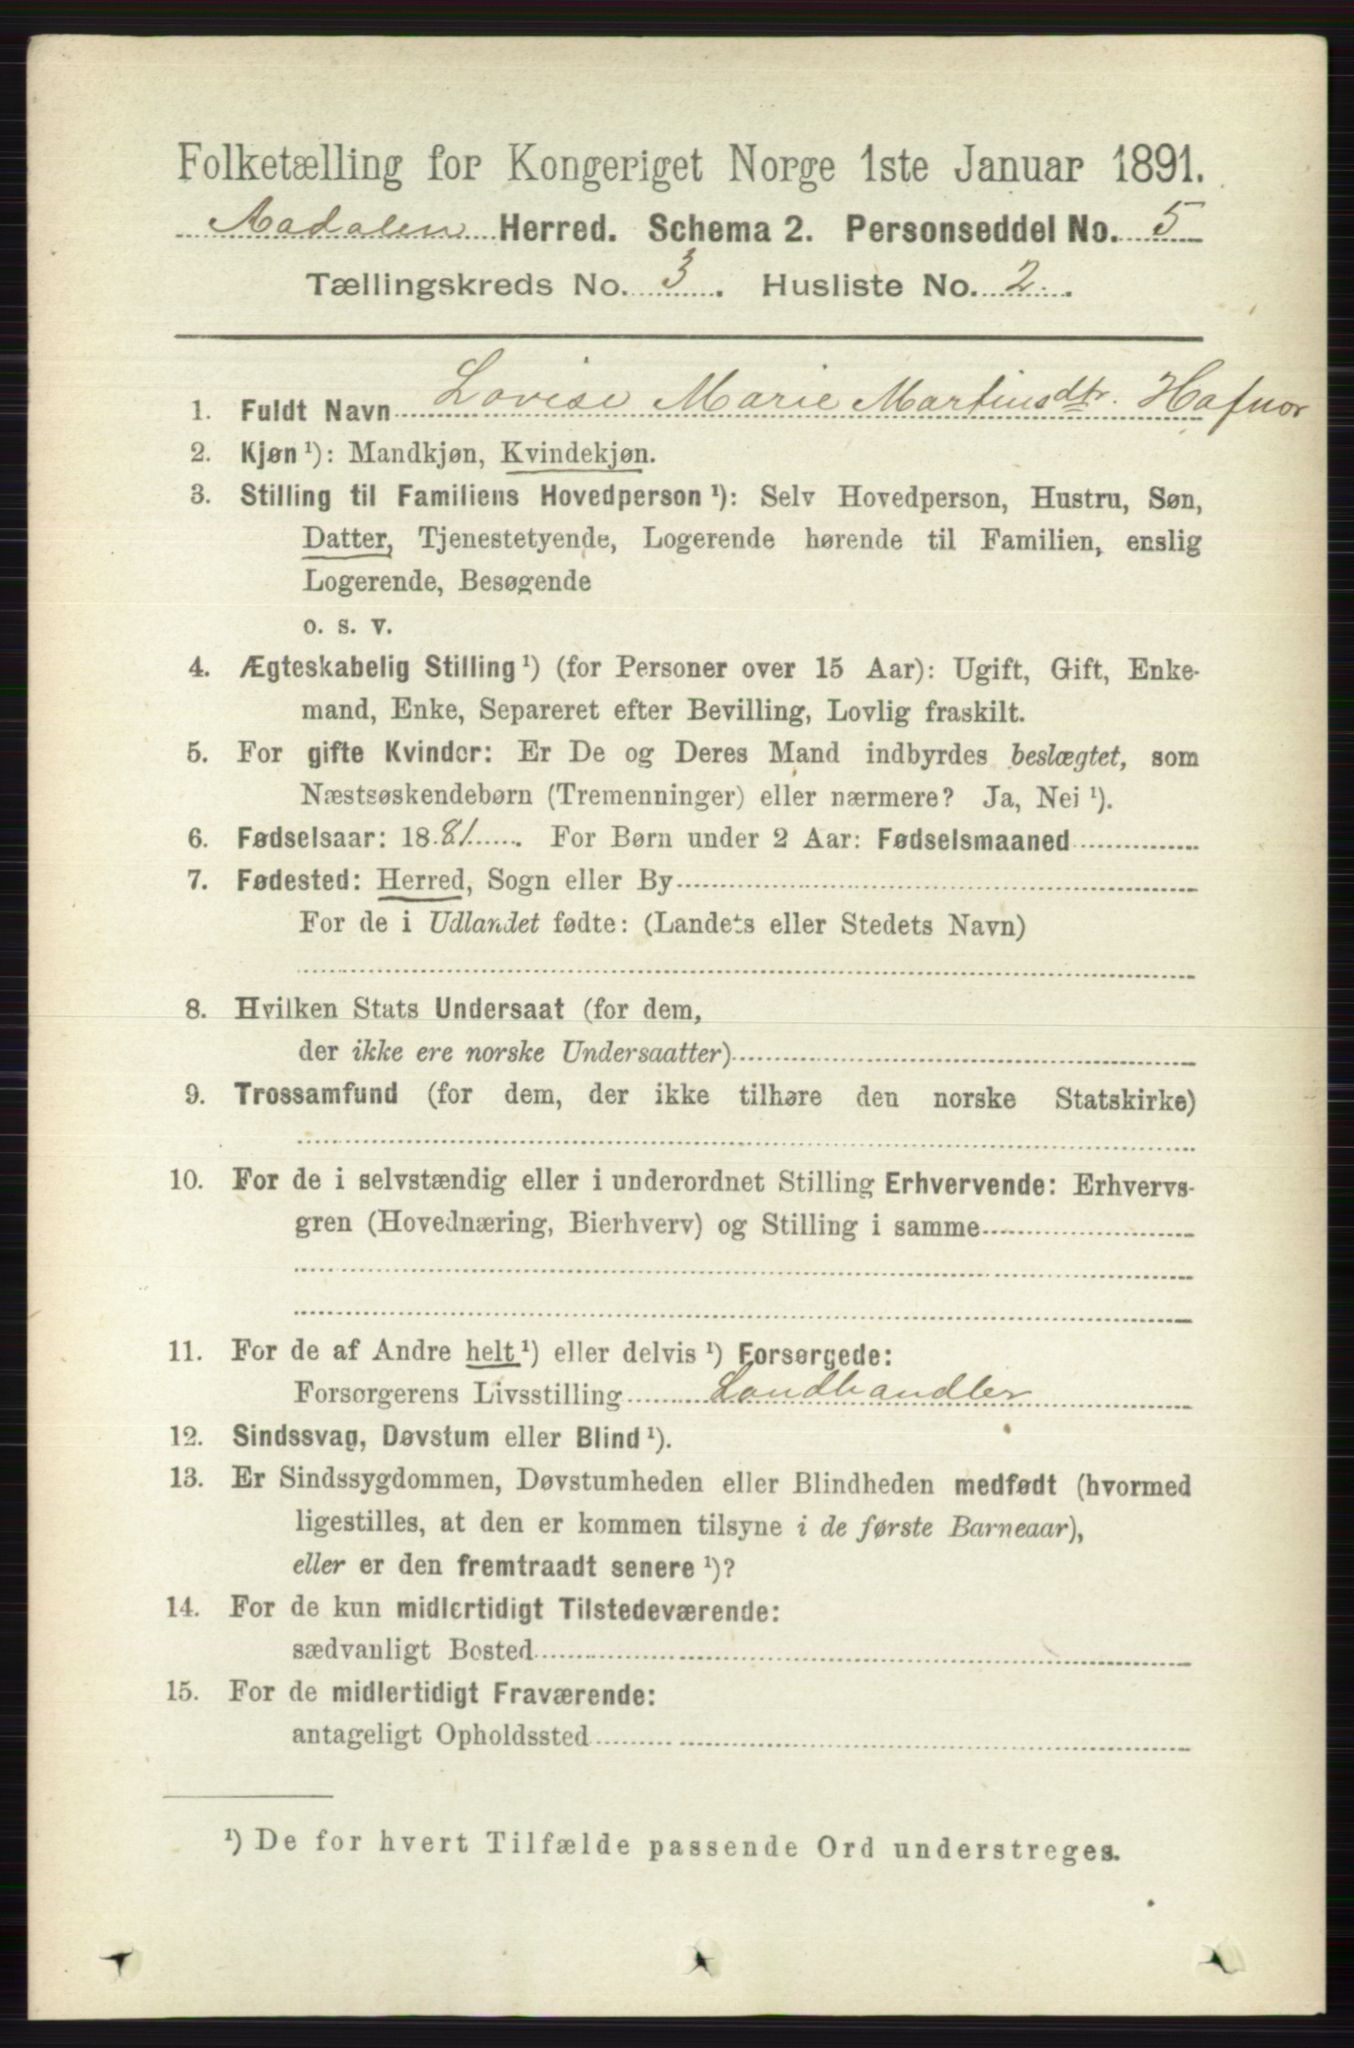 Folketælling for Kongeriget Norge 1ste Januar 1891.
Aadalen Herred. Schema 2. Personseddel No. 5
Tællingskreds No. 3. Husliste No. 2.
1. Fuldt Navn Lovise Marie Martinsdtr. Hafnor
2. Kjøn ¹): Mandkjøn, Kvindekjøn.
3. Stilling til Familiens Hovedperson ¹): Selv Hovedperson, Hustru, Søn,
Datter, Tjenestetyende, Logerende hørende til Familien, enslig
Logerende, Besøgende
o. s. v.
4. Ægteskabelig Stilling ¹) (for Personer over 15 Aar): Ugift, Gift, Enke-
mand, Enke, Separeret efter Bevilling, Lovlig fraskilt.
5. For gifte Kvinder: Er De og Deres Mand indbyrdes beslægtet, som
Næstsøskendebørn (Tremenninger) eller nærmere? Ja, Nei ¹).
6. Fødselsaar: 1881. For Børn under 2 Aar: Fødselsmaaned
7. Fødested: Herred, Sogn eller By
For de i Udlandet fødte: (Landets eller Stedets Navn)
8. Hvilken Stats Undersaat (for dem,
der ikke ere norske Undersaatter)
9. Trossamfund (for dem, der ikke tilhøre den norske Statskirke)
10. For de i selvstændig eller i underordnet Stilling Erhvervende: Erhvervs-
gren (Hovednæring, Bierhverv) og Stilling i samme
11. For de af Andre helt ¹) eller delvis ¹) Forsørgede:
Forsørgerens Livsstilling Landhandler
12. Sindssvag, Døvstum eller Blind ¹).
13. Er Sindssygdommen, Døvstumheden eller Blindheden medfødt (hvormed
ligestilles, at den er kommen tilsyne i de første Barneaar),
eller er den fremtraadt senere ¹)?
14. For de kun midlertidigt Tilstedeværende:
sædvanligt Bosted
15. For de midlertidigt Fraværende:
antageligt Opholdssted
¹) De for hvert Tilfælde passende Ord understreges.